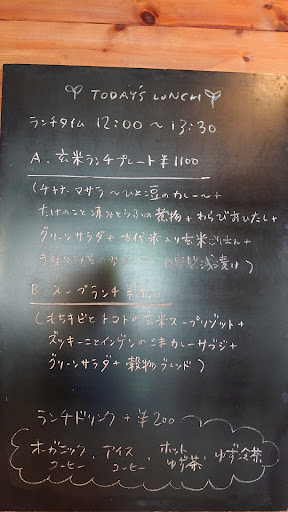 TODAY'S LUNCH
ランチタイム 12:00～13:30
A. 玄米ランチプレート ¥1100
(チャナマサラ ～ひよこ豆のカレー～ +
たけのこと凍みとうふの煮物 + わらびおひたし +
グリーンサラダ + 古代米入り玄米ごはん +
浅漬け)
B. スープランチ
(もちキビとトマトの玄米スープリゾット +
ズッキーニとインゲンのカレーサブジ +
グリーンサラダ + 穀物ブレンド)
ランチドリンク + ¥200
オーガニックコーヒー ・ アイスコーヒー ・ ホットゆず茶 ・ ゆず冷茶